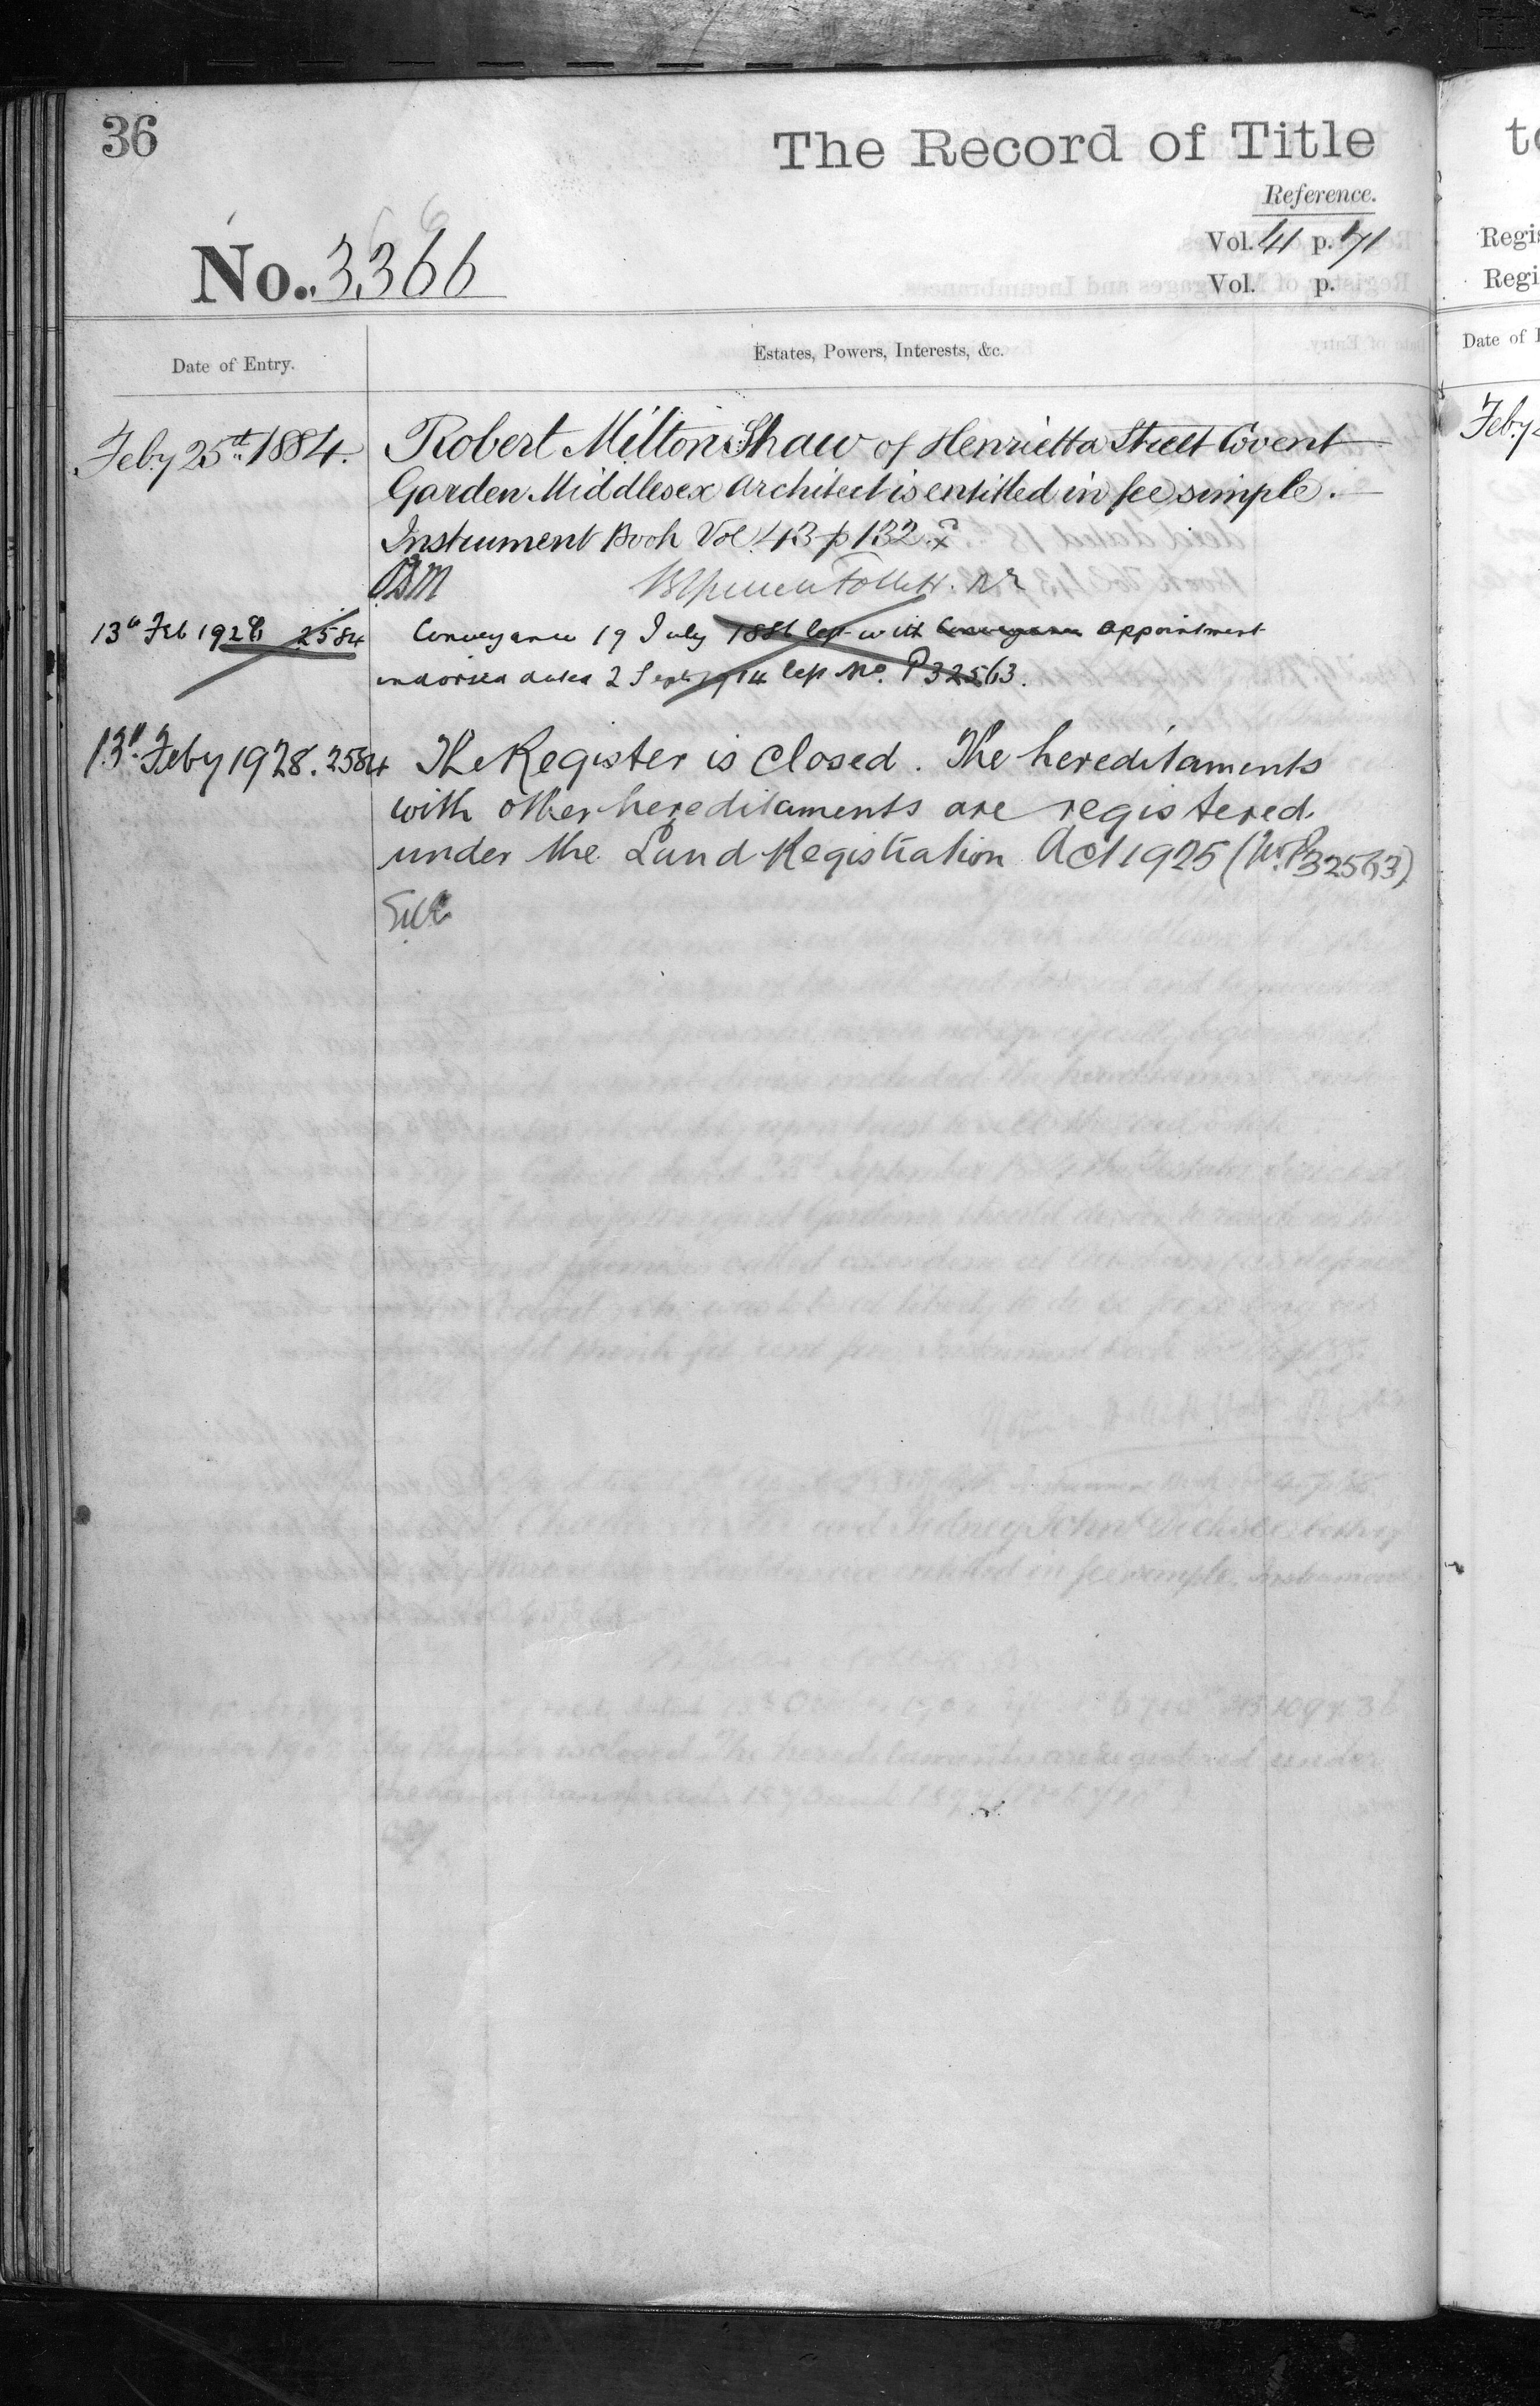 36
The Record of Title
Reference.
No. 3,366
Vol. 41 p. 71
Vol. p.
Date of Entry.
Estates, Powers, Interests, &c.
Feby 25th 1884.
Robert Milton Shaw of Henrietta Street Covent
Garden Middlesex Architect is entitled in fee simple.
Instrument Book Vol. 43 p 132.
13th Feb 1928 2584
Conveyance 19 July 1886 left with Conveyance Appointment
endorsed dated 2 Sept 1914 left No. P32563.
13th Feby 1928. 2584
The Register is closed. The hereditaments
with other hereditaments are registered
under the Land Registration Act 1925 (No. P32563)
Regis
Regi
Date of
Feby